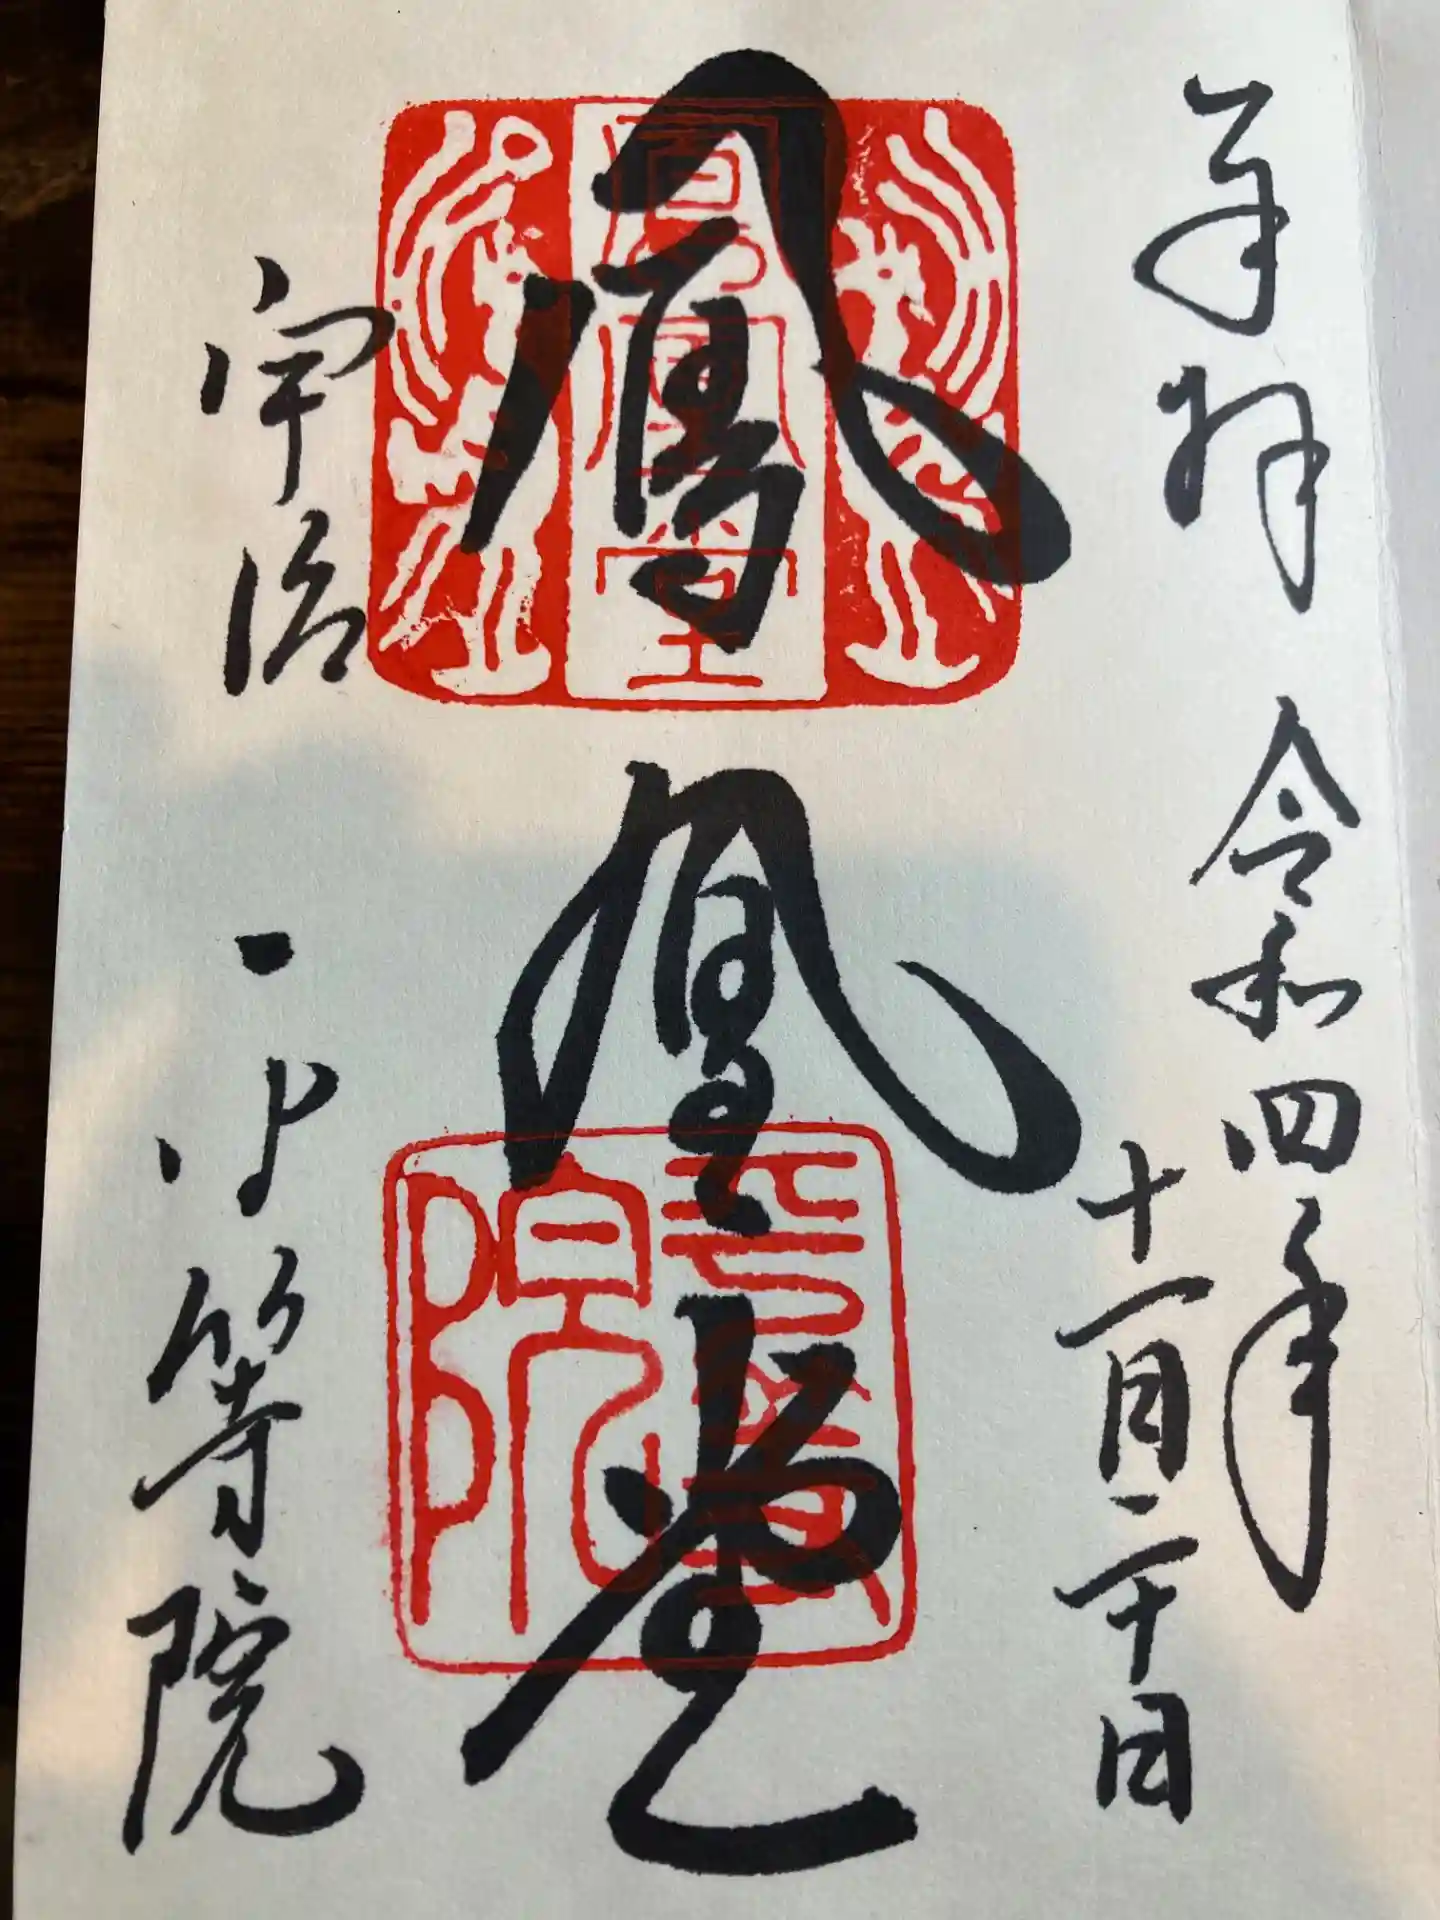 奉拝
令和四年
十一月二十日
鳳凰堂
宇治
平等院
鳳凰堂
平等院